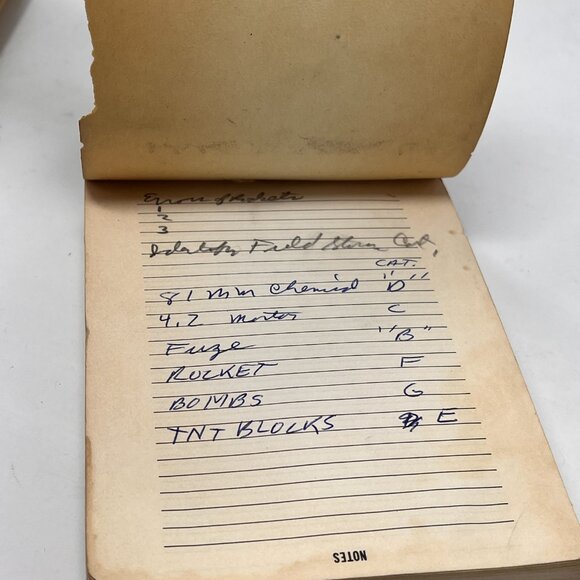 Errors of Rockets
1
2
3
Identify Field Storage Cat.
CAT.
81 mm Chemical "D"
4.2 mortar C
Fuze "B"
ROCKET F
BOMBS G
TNT BLOCKS E
NOTES